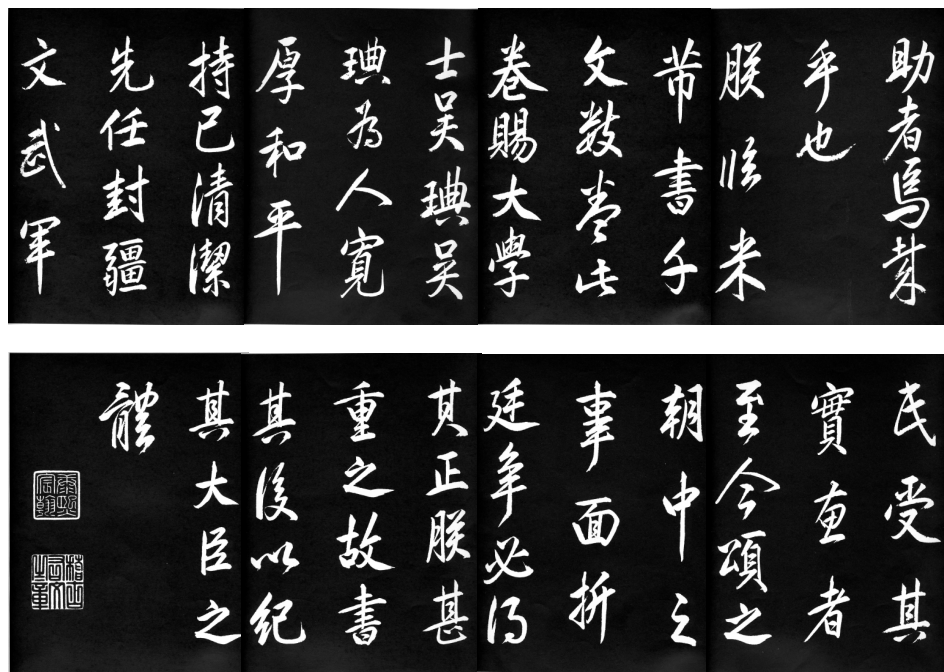 助者焉哉
乎也
朕臨米
芾書千
文數卷此
卷賜大學
士吳琠吳
琠為人寬
厚和平
持己清潔
先任封疆
文武軍
民受其
實惠者
至今頌之
朝中之
事面折
廷爭必得
其正朕甚
重之故書
其後以紀
其大臣之
體
康熙宸翰
稽古右文之章